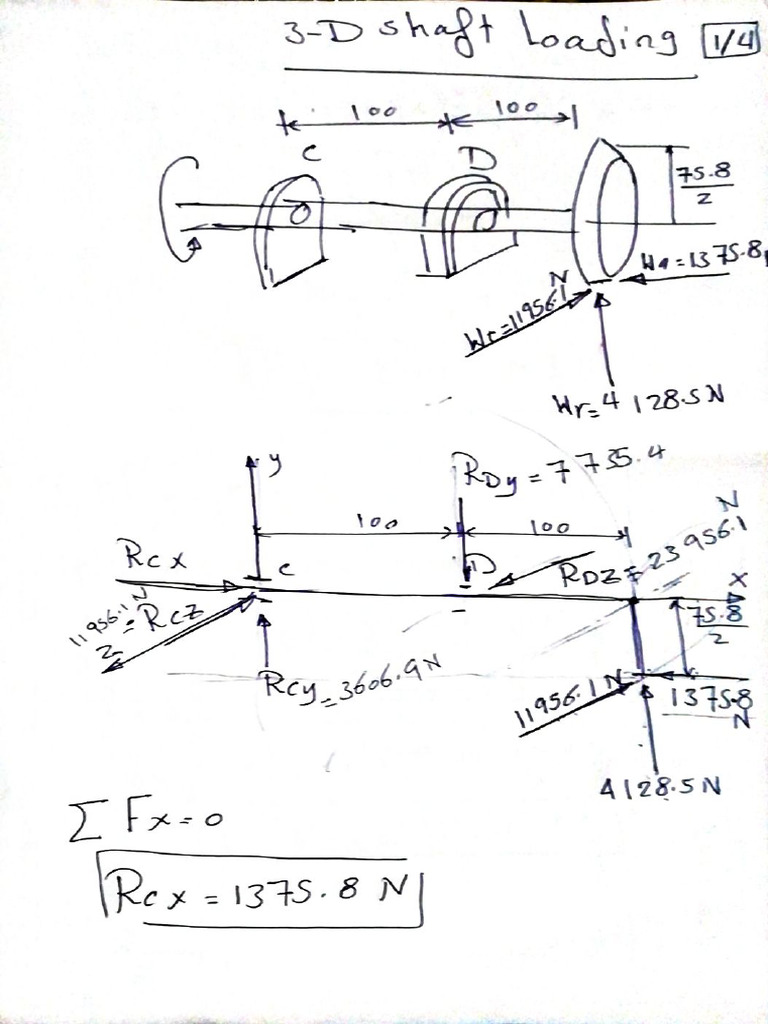 3-D shaft Loading 1/4
100 100
C D
75.8
2
Wa=1375.8
Wt=11956.1 N
Wr=4128.5 N
y
RDy = 7735.4
100 100
Rcx
C
D
RDZ = 23956.1 N
x
11956.1 N = Rcz
z
75.8
2
Rcy = 3606.9 N
11956.1 N
1375.8 N
4128.5 N
Σ Fx = 0
Rcx = 1375.8 N